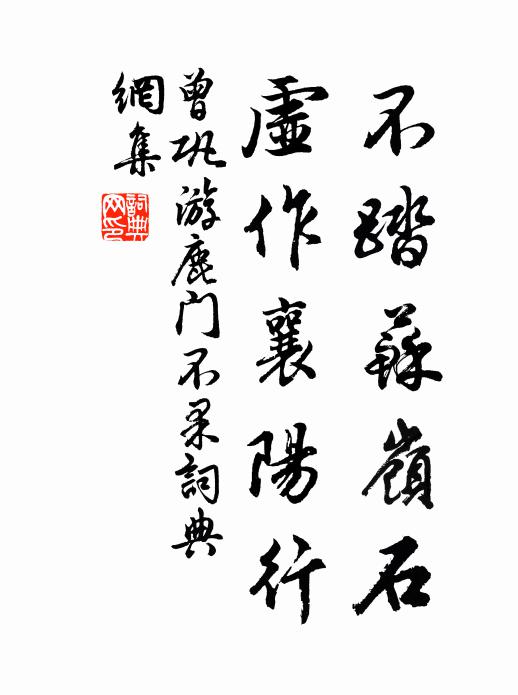 不踏蘇嶺石
虛作襄陽行
曾巩游鹿门不果詞典
網集
詞典網印